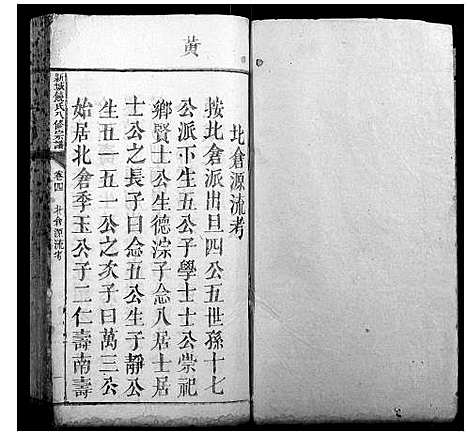 黃
北倉源流考
按北倉派出旦四公五世孫十七
公派下生五公子學士士公崇祀
鄉賢士公生德淙子念八居士居
士公之長子曰念五公生子靜公
生五一五一公之次子曰萬三公
始居北倉季玉公子二仁壽南壽
新城饒氏八修宗譜
卷四
北倉源流考